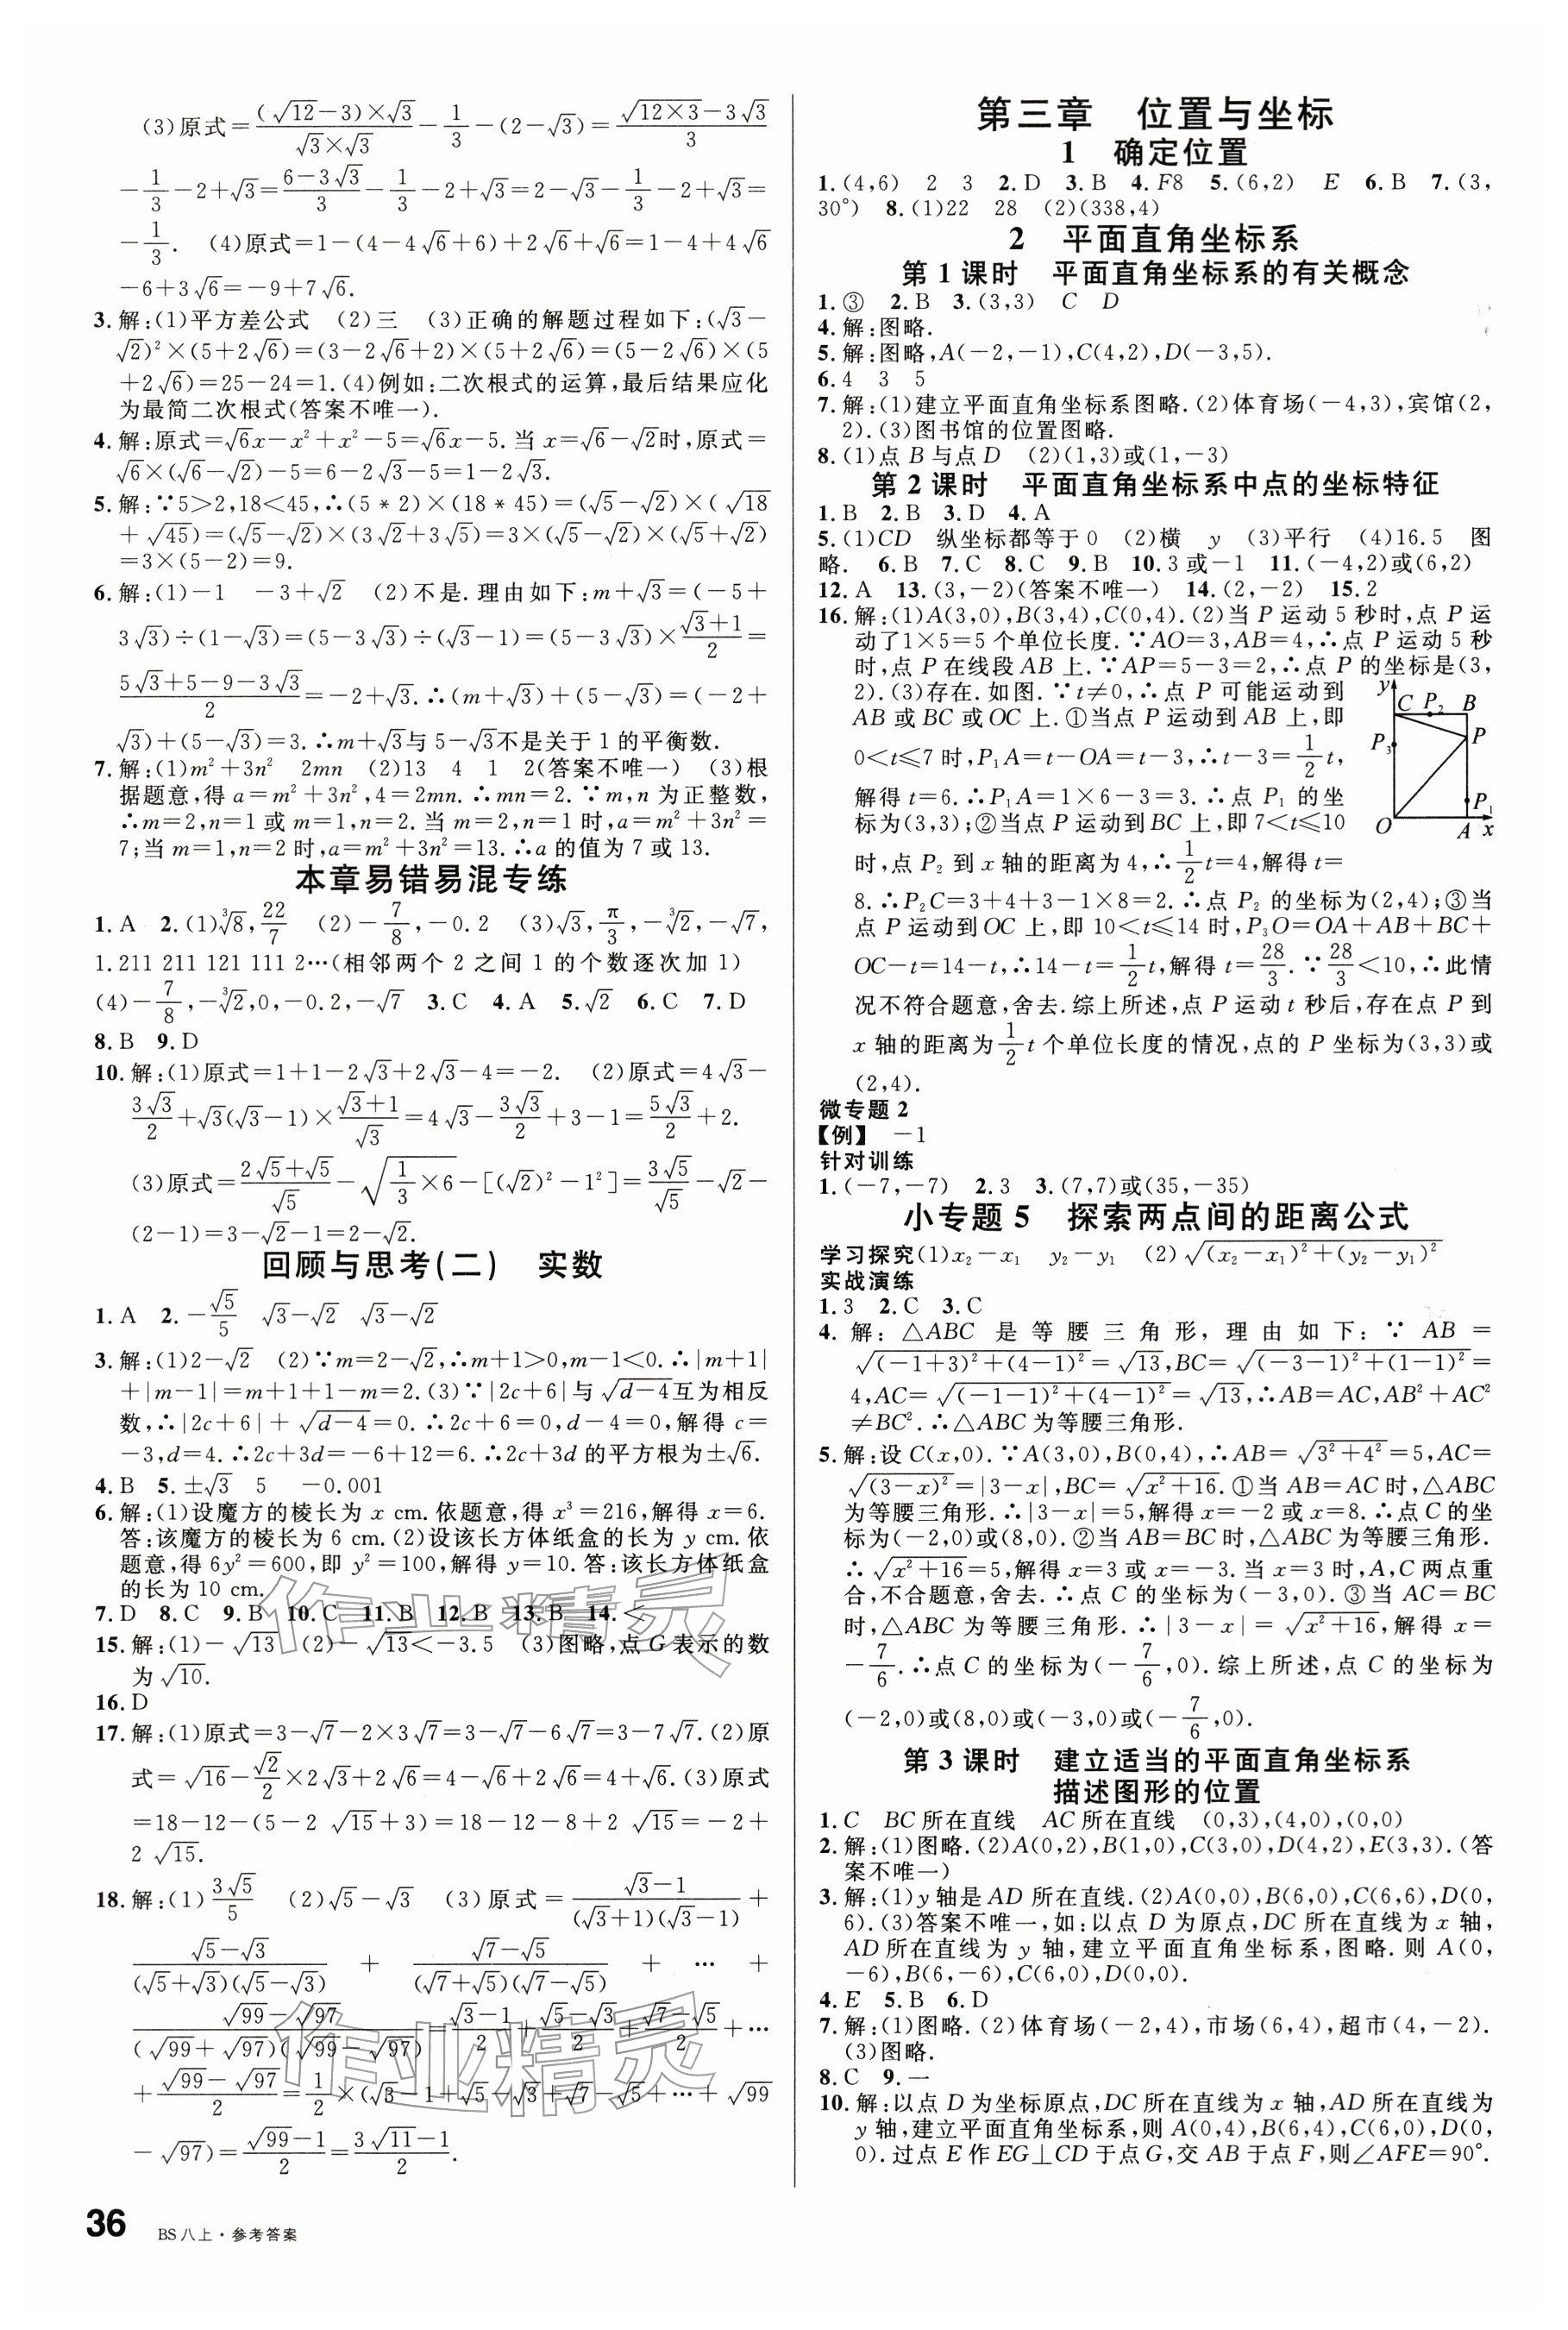 (3)原式=((√12-3)×√3)/(√3×√3)-1/3-(2-√3)=(√(12×3)-3√3)/3
-1/3-2+√3=(6-3√3)/3-1/3-2+√3=2-√3-1/3-2+√3=
-1/3. (4)原式=1-(4-4√6+6)+2√6+√6=1-4+4√6
-6+3√6=-9+7√6.
3.解:(1)平方差公式 (2)三 (3)正确的解题过程如下:(√3-
√2)²×(5+2√6)=(3-2√6+2)×(5+2√6)=(5-2√6)×(5
+2√6)=25-24=1.(4)例如:二次根式的运算,最后结果应化
为最简二次根式(答案不唯一).
4.解:原式=√6x-x²+x²-5=√6x-5.当x=√6-√2时,原式=
√6×(√6-√2)-5=6-2√3-5=1-2√3.
5.解:∵5>2,18<45,∴(5*2)×(18*45)=(√5-√2)×(√18
+√45)=(√5-√2)×(3√2+3√5)=3×(√5-√2)×(√5+√2)
=3×(5-2)=9.
6.解:(1)-1 -3+√2 (2)不是.理由如下:m+√3=(-5+
3√3)÷(1-√3)=(5-3√3)÷(√3-1)=(5-3√3)×(√3+1)/2=
(5√3+5-9-3√3)/2=-2+√3.∴(m+√3)+(5-√3)=(-2+
√3)+(5-√3)=3.∴m+√3与5-√3不是关于1的平衡数.
7.解:(1)m²+3n² 2mn (2)13 4 1 2(答案不唯一) (3)根
据题意,得a=m²+3n²,4=2mn.∴mn=2.∵m,n为正整数,
∴m=2,n=1或m=1,n=2.当m=2,n=1时,a=m²+3n²=
7;当m=1,n=2时,a=m²+3n²=13.∴a的值为7或13.
本章易错易混专练
1.A 2.(1)∛8,22/7 (2)-7/8,-0.2 (3)√3,π/3,-∛2,-√7,
1.211 211 121 111 2…(相邻两个2之间1的个数逐次加1)
(4)-7/8,-∛2,0,-0.2,-√7 3.C 4.A 5.√2 6.C 7.D
8.B 9.D
10.解:(1)原式=1+1-2√3+2√3-4=-2. (2)原式=4√3-
3√3/2+√3(√3-1)×(√3+1)/√3=4√3-3√3/2+3-1=5√3/2+2.
(3)原式=(2√5+√5)/√5-√(1/3×6)-[(√2)²-1²]=3√5/√5-√2-
(2-1)=3-√2-1=2-√2.
回顾与思考(二) 实数
1.A 2.-√5/5 √3-√2 √3-√2
3.解:(1)2-√2 (2)∵m=2-√2,∴m+1>0,m-1<0.∴|m+1|
+|m-1|=m+1+1-m=2.(3)∵|2c+6|与√(d-4)互为相反
数,∴|2c+6|+√(d-4)=0.∴2c+6=0,d-4=0,解得c=
-3,d=4.∴2c+3d=-6+12=6.∴2c+3d的平方根为±√6.
4.B 5.±√3 5 -0.001
6.解:(1)设魔方的棱长为x cm.依题意,得x³=216,解得x=6.
答:该魔方的棱长为6 cm.(2)设该长方体纸盒的长为y cm.依
题意,得6y²=600,即y²=100,解得y=10.答:该长方体纸盒
的长为10 cm.
7.D 8.C 9.B 10.C 11.B 12.B 13.B 14.<
15.解:(1)-√13 (2)-√13<-3.5 (3)图略,点G表示的数
为√10.
16.D
17.解:(1)原式=3-√7-2×3√7=3-√7-6√7=3-7√7.(2)原
式=√16-√2/2×2√3+2√6=4-√6+2√6=4+√6.(3)原式
=18-12-(5-2√15+3)=18-12-8+2√15=-2+
2√15.
18.解:(1)3√5/5 (2)√5-√3 (3)原式=(√3-1)/((√3+1)(√3-1))+
(√5-√3)/((√5+√3)(√5-√3))+(√7-√5)/((√7+√5)(√7-√5))+…+
(√99-√97)/((√99+√97)(√99-√97))=(√3-1)/2+(√5-√3)/2+(√7-√5)/2+…
+(√99-√97)/2=1/2×(√3-1+√5-√3+√7-√5+…+√99
-√97)=(√99-1)/2=(3√11-1)/2.
36 BS八上·参考答案
第三章 位置与坐标
1 确定位置
1.(4,6) 2 3 2.D 3.B 4.F8 5.(6,2) E 6.B 7.(3,
30°) 8.(1)22 28 (2)(338,4)
2 平面直角坐标系
第1课时 平面直角坐标系的有关概念
1.③ 2.B 3.(3,3) C D
4.解:图略.
5.解:图略,A(-2,-1),C(4,2),D(-3,5).
6.4 3 5
7.解:(1)建立平面直角坐标系图略.(2)体育场(-4,3),宾馆(2,
2).(3)图书馆的位置图略.
8.(1)点B与点D (2)(1,3)或(1,-3)
第2课时 平面直角坐标系中点的坐标特征
1.B 2.B 3.D 4.A
5.(1)CD 纵坐标都等于0 (2)横 y (3)平行 (4)16.5 图
略. 6.B 7.C 8.C 9.B 10.3或-1 11.(-4,2)或(6,2)
12.A 13.(3,-2)(答案不唯一) 14.(2,-2) 15.2
16.解:(1)A(3,0),B(3,4),C(0,4).(2)当P运动5秒时,点P运
动了1×5=5个单位长度.∵AO=3,AB=4,∴点P运动5秒
时,点P在线段AB上.∵AP=5-3=2,∴点P的坐标是(3,
2).(3)存在.如图.∵t≠0,∴点P可能运动到
AB或BC或OC上.①当点P运动到AB上,即
0<t≤7时,P₁A=t-OA=t-3,∴t-3=1/2t,
解得t=6.∴P₁A=1×6-3=3.∴点P₁的坐
标为(3,3);②当点P运动到BC上,即7<t≤10
时,点P₂到x轴的距离为4,∴1/2t=4,解得t=
8.∴P₂C=3+4+3-1×8=2.∴点P₂的坐标为(2,4);③当
点P运动到OC上,即10<t≤14时,P₃O=OA+AB+BC+
OC-t=14-t,∴14-t=1/2t,解得t=28/3.∵28/3<10,∴此情
况不符合题意,舍去.综上所述,点P运动t秒后,存在点P到
x轴的距离为1/2t个单位长度的情况,点的P坐标为(3,3)或
(2,4).
y
C P₂ B
P₃ P
P₁
O A x
微专题2
【例】 -1
针对训练
1.(-7,-7) 2.3 3.(7,7)或(35,-35)
小专题5 探索两点间的距离公式
学习探究(1)x₂-x₁ y₂-y₁ (2)√((x₂-x₁)²+(y₂-y₁)²)
实战演练
1.3 2.C 3.C
4.解:△ABC是等腰三角形,理由如下:∵AB=
√((-1+3)²+(4-1)²)=√13,BC=√((-3-1)²+(1-1)²)=
4,AC=√((-1-1)²+(4-1)²)=√13,∴AB=AC,AB²+AC²
≠BC².∴△ABC为等腰三角形.
5.解:设C(x,0).∵A(3,0),B(0,4),∴AB=√(3²+4²)=5,AC=
√((3-x)²)=|3-x|,BC=√(x²+16).①当AB=AC时,△ABC
为等腰三角形.∴|3-x|=5,解得x=-2或x=8.∴点C的坐
标为(-2,0)或(8,0).②当AB=BC时,△ABC为等腰三角形.
∴√(x²+16)=5,解得x=3或x=-3.当x=3时,A,C两点重
合,不合题意,舍去.∴点C的坐标为(-3,0).③当AC=BC
时,△ABC为等腰三角形.∴|3-x|=√(x²+16),解得x=
-7/6.∴点C的坐标为(-7/6,0).综上所述,点C的坐标为
(-2,0)或(8,0)或(-3,0)或(-7/6,0).
第3课时 建立适当的平面直角坐标系
描述图形的位置
1.C BC所在直线 AC所在直线 (0,3),(4,0),(0,0)
2.解:(1)图略.(2)A(0,2),B(1,0),C(3,0),D(4,2),E(3,3).(答
案不唯一)
3.解:(1)y轴是AD所在直线.(2)A(0,0),B(6,0),C(6,6),D(0,
6).(3)答案不唯一,如:以点D为原点,DC所在直线为x轴,
AD所在直线为y轴,建立平面直角坐标系,图略.则A(0,
-6),B(6,-6),C(6,0),D(0,0).
4.E 5.B 6.D
7.解:(1)图略.(2)体育场(-2,4),市场(6,4),超市(4,-2).
(3)图略.
8.C 9.一
10.解:以点D为坐标原点,DC所在直线为x轴,AD所在直线为
y轴,建立平面直角坐标系,则A(0,4),B(6,4),C(6,0),D(0,
0).过点E作EG⊥CD于点G,交AB于点F,则∠AFE=90°.
作业精灵
作业精灵